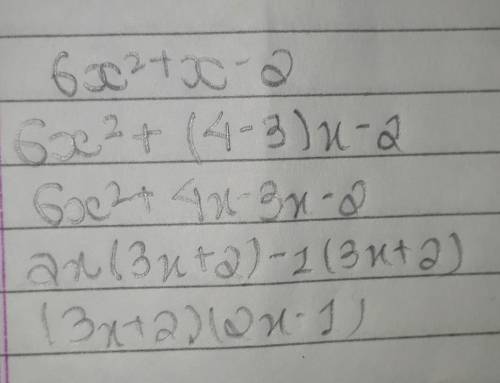 6x²+x-2
6x²+(4-3)x-2
6x²+4x-3x-2
2x(3x+2)-1(3x+2)
(3x+2)(2x-1)